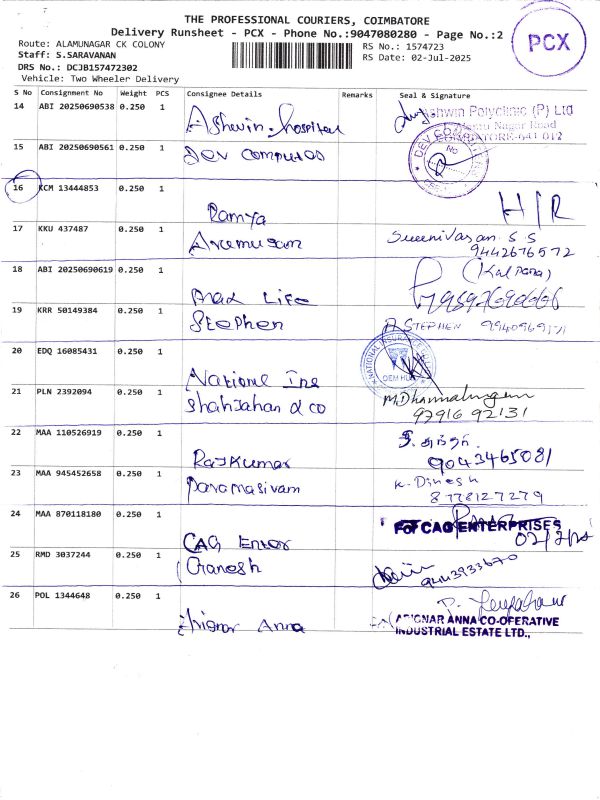 THE PROFESSIONAL COURIERS, COIMBATORE
Delivery Runsheet - PCX - Phone No.:9047080280 - Page No.:2
Route: ALAMUNAGAR CK COLONY
RS No.: 1574723
Staff: S.SARAVANAN
RS Date: 02-Jul-2025
DRS No.: DCJB157472302
Vehicle: Two Wheeler Delivery
PCX
S No Consignment No Weight PCS Consignee Details Remarks Seal & Signature
14 ABI 20250690538 0.250 1 Ashwin hospital
Ashwin Polyclinic (P) Ltd
Alamu Nagar Road
COIMBATORE-641 012
15 ABI 20250690561 0.250 1 Dev computes
16 KCM 13444853 0.250 1 Ramya H/R
17 KKU 437487 0.250 1 Arumugam Sreenivasan S S
9442676572
18 ABI 20250690619 0.250 1 Max Life (Kalpana)
19 KRR 50149384 0.250 1 Stephen A STEPHEN
20 EDQ 16085431 0.250 1 National Ins
21 PLN 2392094 0.250 1 Shahjahan & co M.Dhanmalingam
97916 92131
22 MAA 110526919 0.250 1 Rajkumar
9043465081
23 MAA 945452658 0.250 1 Paramasivam K. Dinesh
8778127279
24 MAA 870118180 0.250 1 CAG Enter
For CAG ENTERPRISES
25 RMD 3037244 0.250 1 Ganesh
26 POL 1344648 0.250 1 Arignar Anna
ARIGNAR ANNA CO-OPERATIVE
INDUSTRIAL ESTATE LTD.,